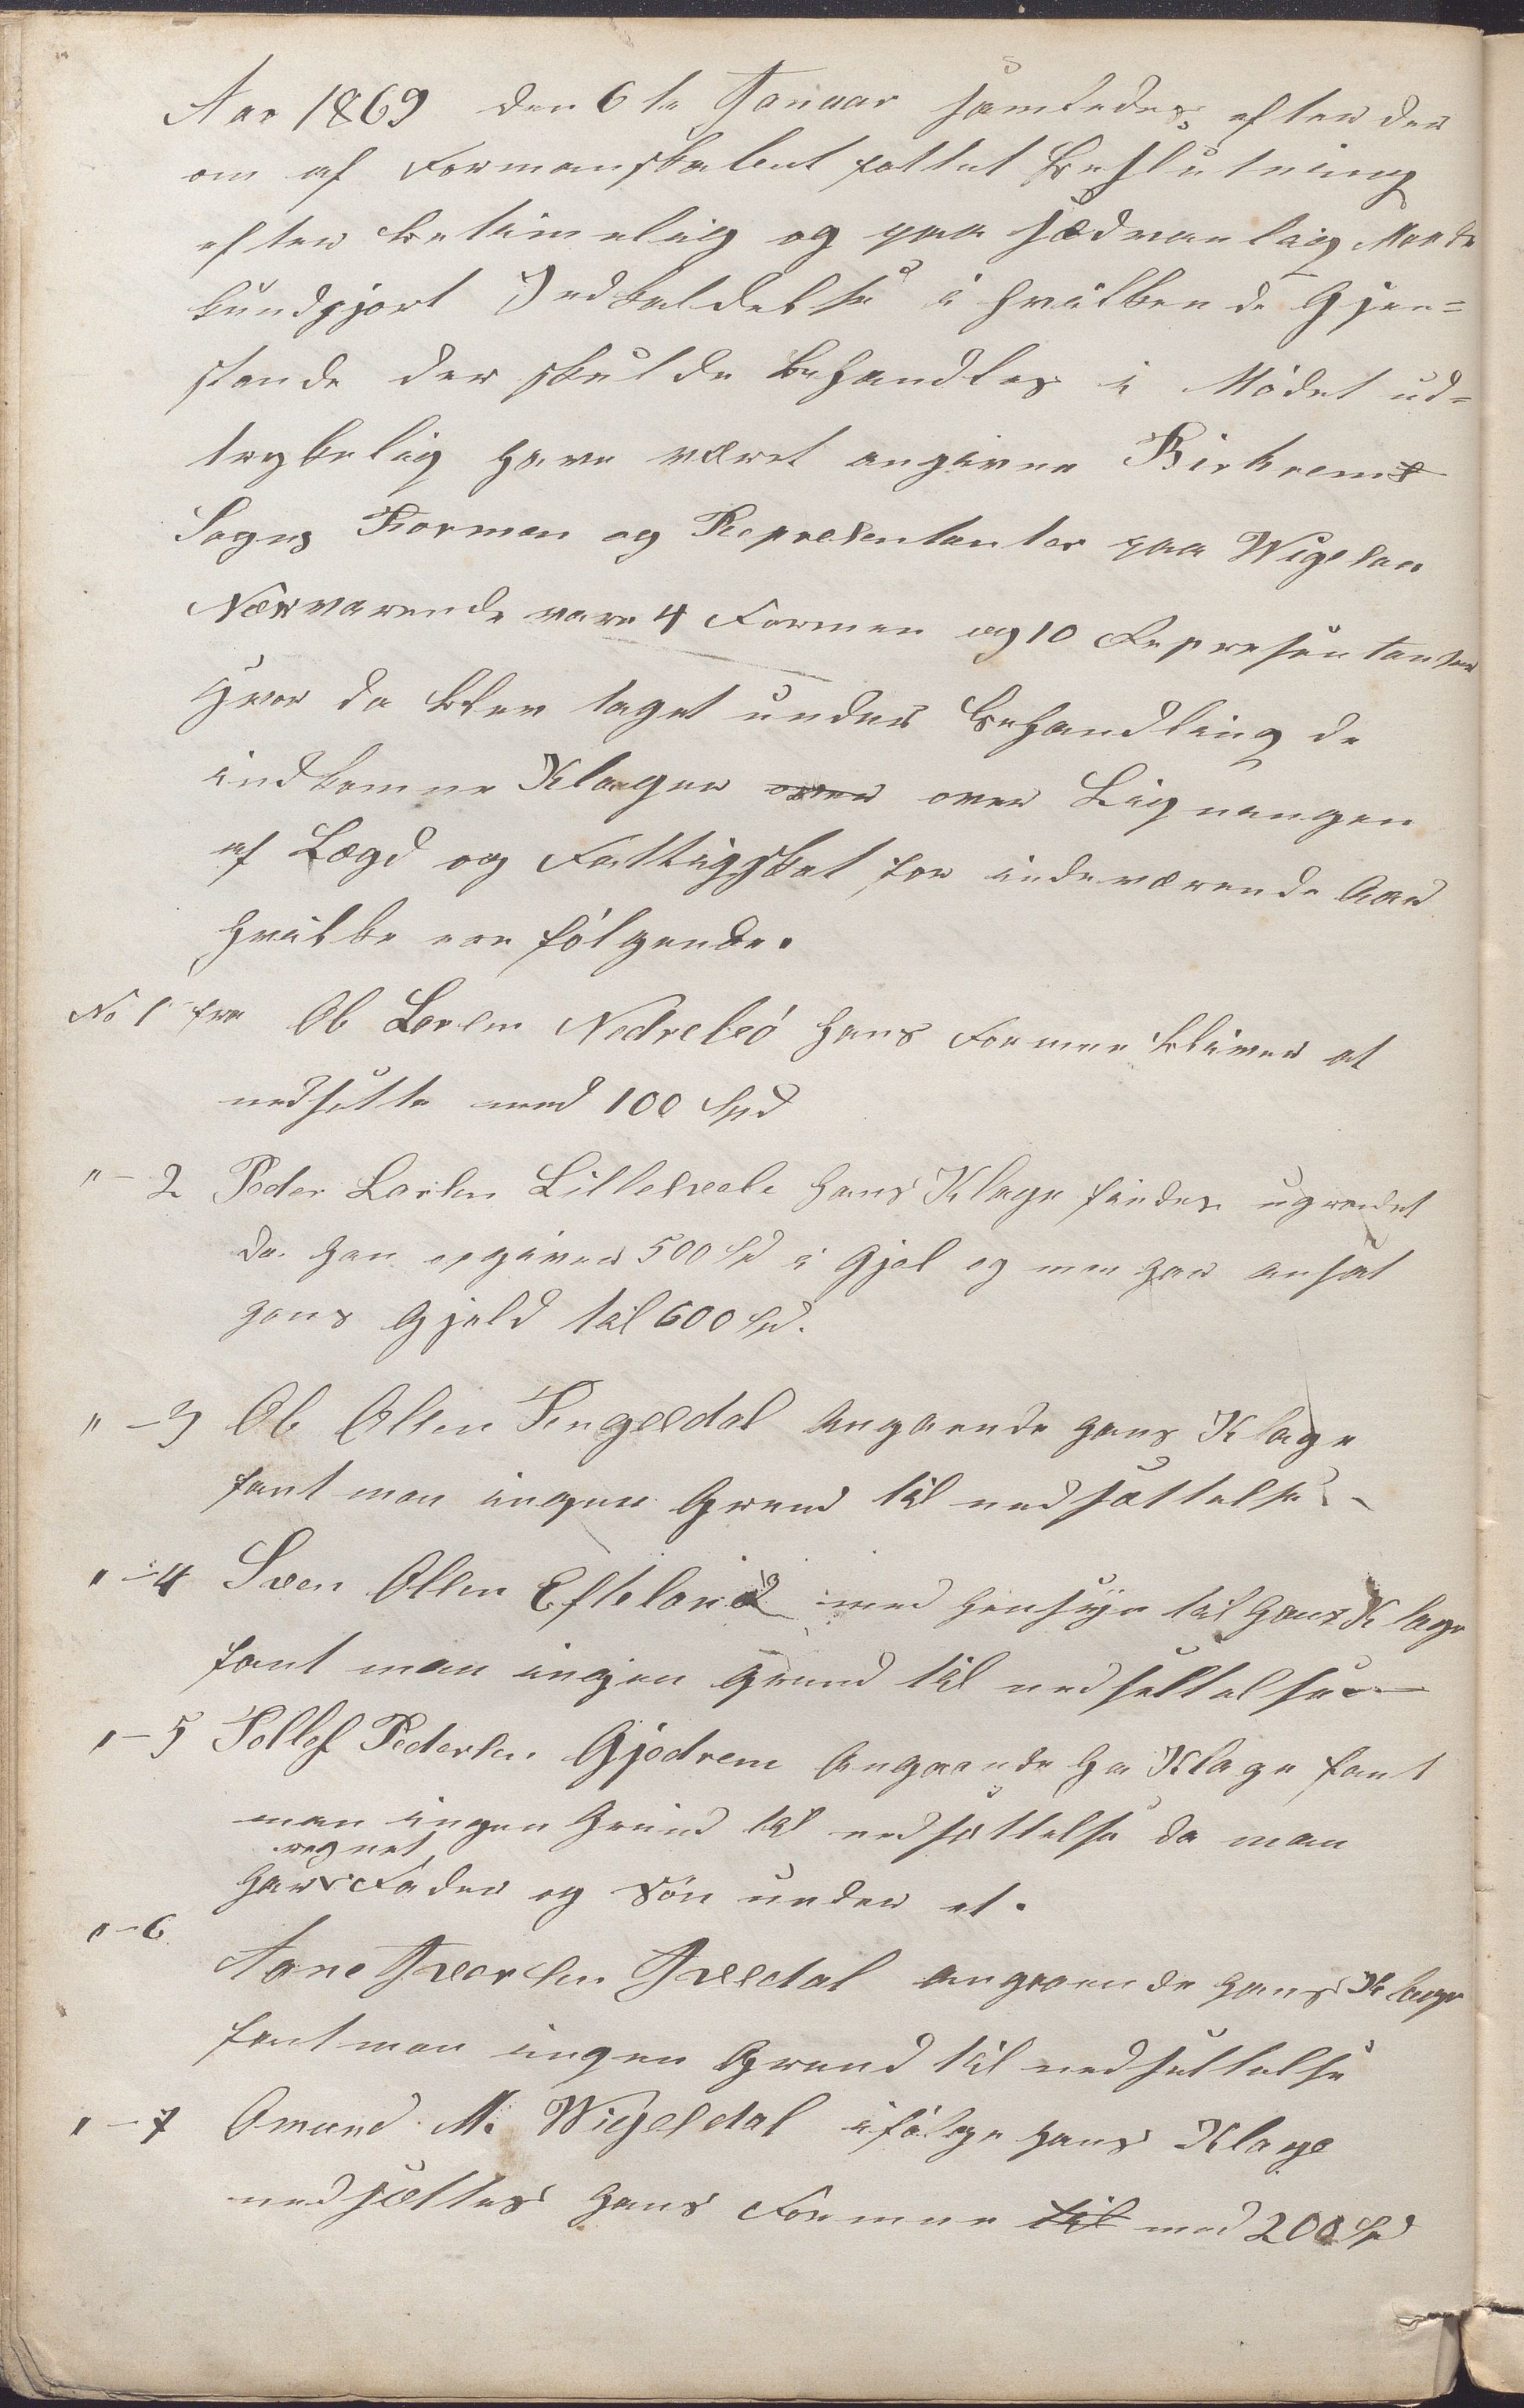 Aar 1869 den 6te Januar samledes efter der
om af Formanskabet fattet Beslutning
efter betimelig og paa sædvanlig Maade
kundgjort Indkaldelse i hvilken de Gjen=
stande der skulde behandles i Mödet ud=
trykelig have været angivne Birkrems
Sogns Forman og Repræsentanter paa Wigesaa
Nærværende vare 4 Formen og 10 Representanter
Hvor da blev taget under Behandling de
indkomne Klager over over Ligningen
af Lægd og Fattigskat for indeværende Aar
hvilke ere fölgende.
No 1 fra Ol Larsen Nedrebö hans Formue bliver at
nedsette med 100 Spd
"-2 Peder Larsen Lilletvede hans Klage findes ugrundet
da han opgiver 500 Spd i Gjel og men har ansat
hans Gjeld til 600 Spd.
"-3 Ol Olsen Tengesdal Angaaende hans Klage
fant man ingen Grund til nedsættelse
"-4 Sven Olsen Efteland med Hensyn til hans Klage
fant man ingen Grund til nedsettelse
"-5 Tollef Pedersen Gjedrem Angaaende ha Klage fant
man ingen Grund til nedsættelse da man
regnet
har Fader og Sön under et.
"-6
Aane Ivarsen Ivesdal angaaende hans Klage
fant man ingen Grund til nedsettelse
"-7 Omund M. Wigesdal ifölge hans Klage
nedsættes hans Formue til med 200 Spd